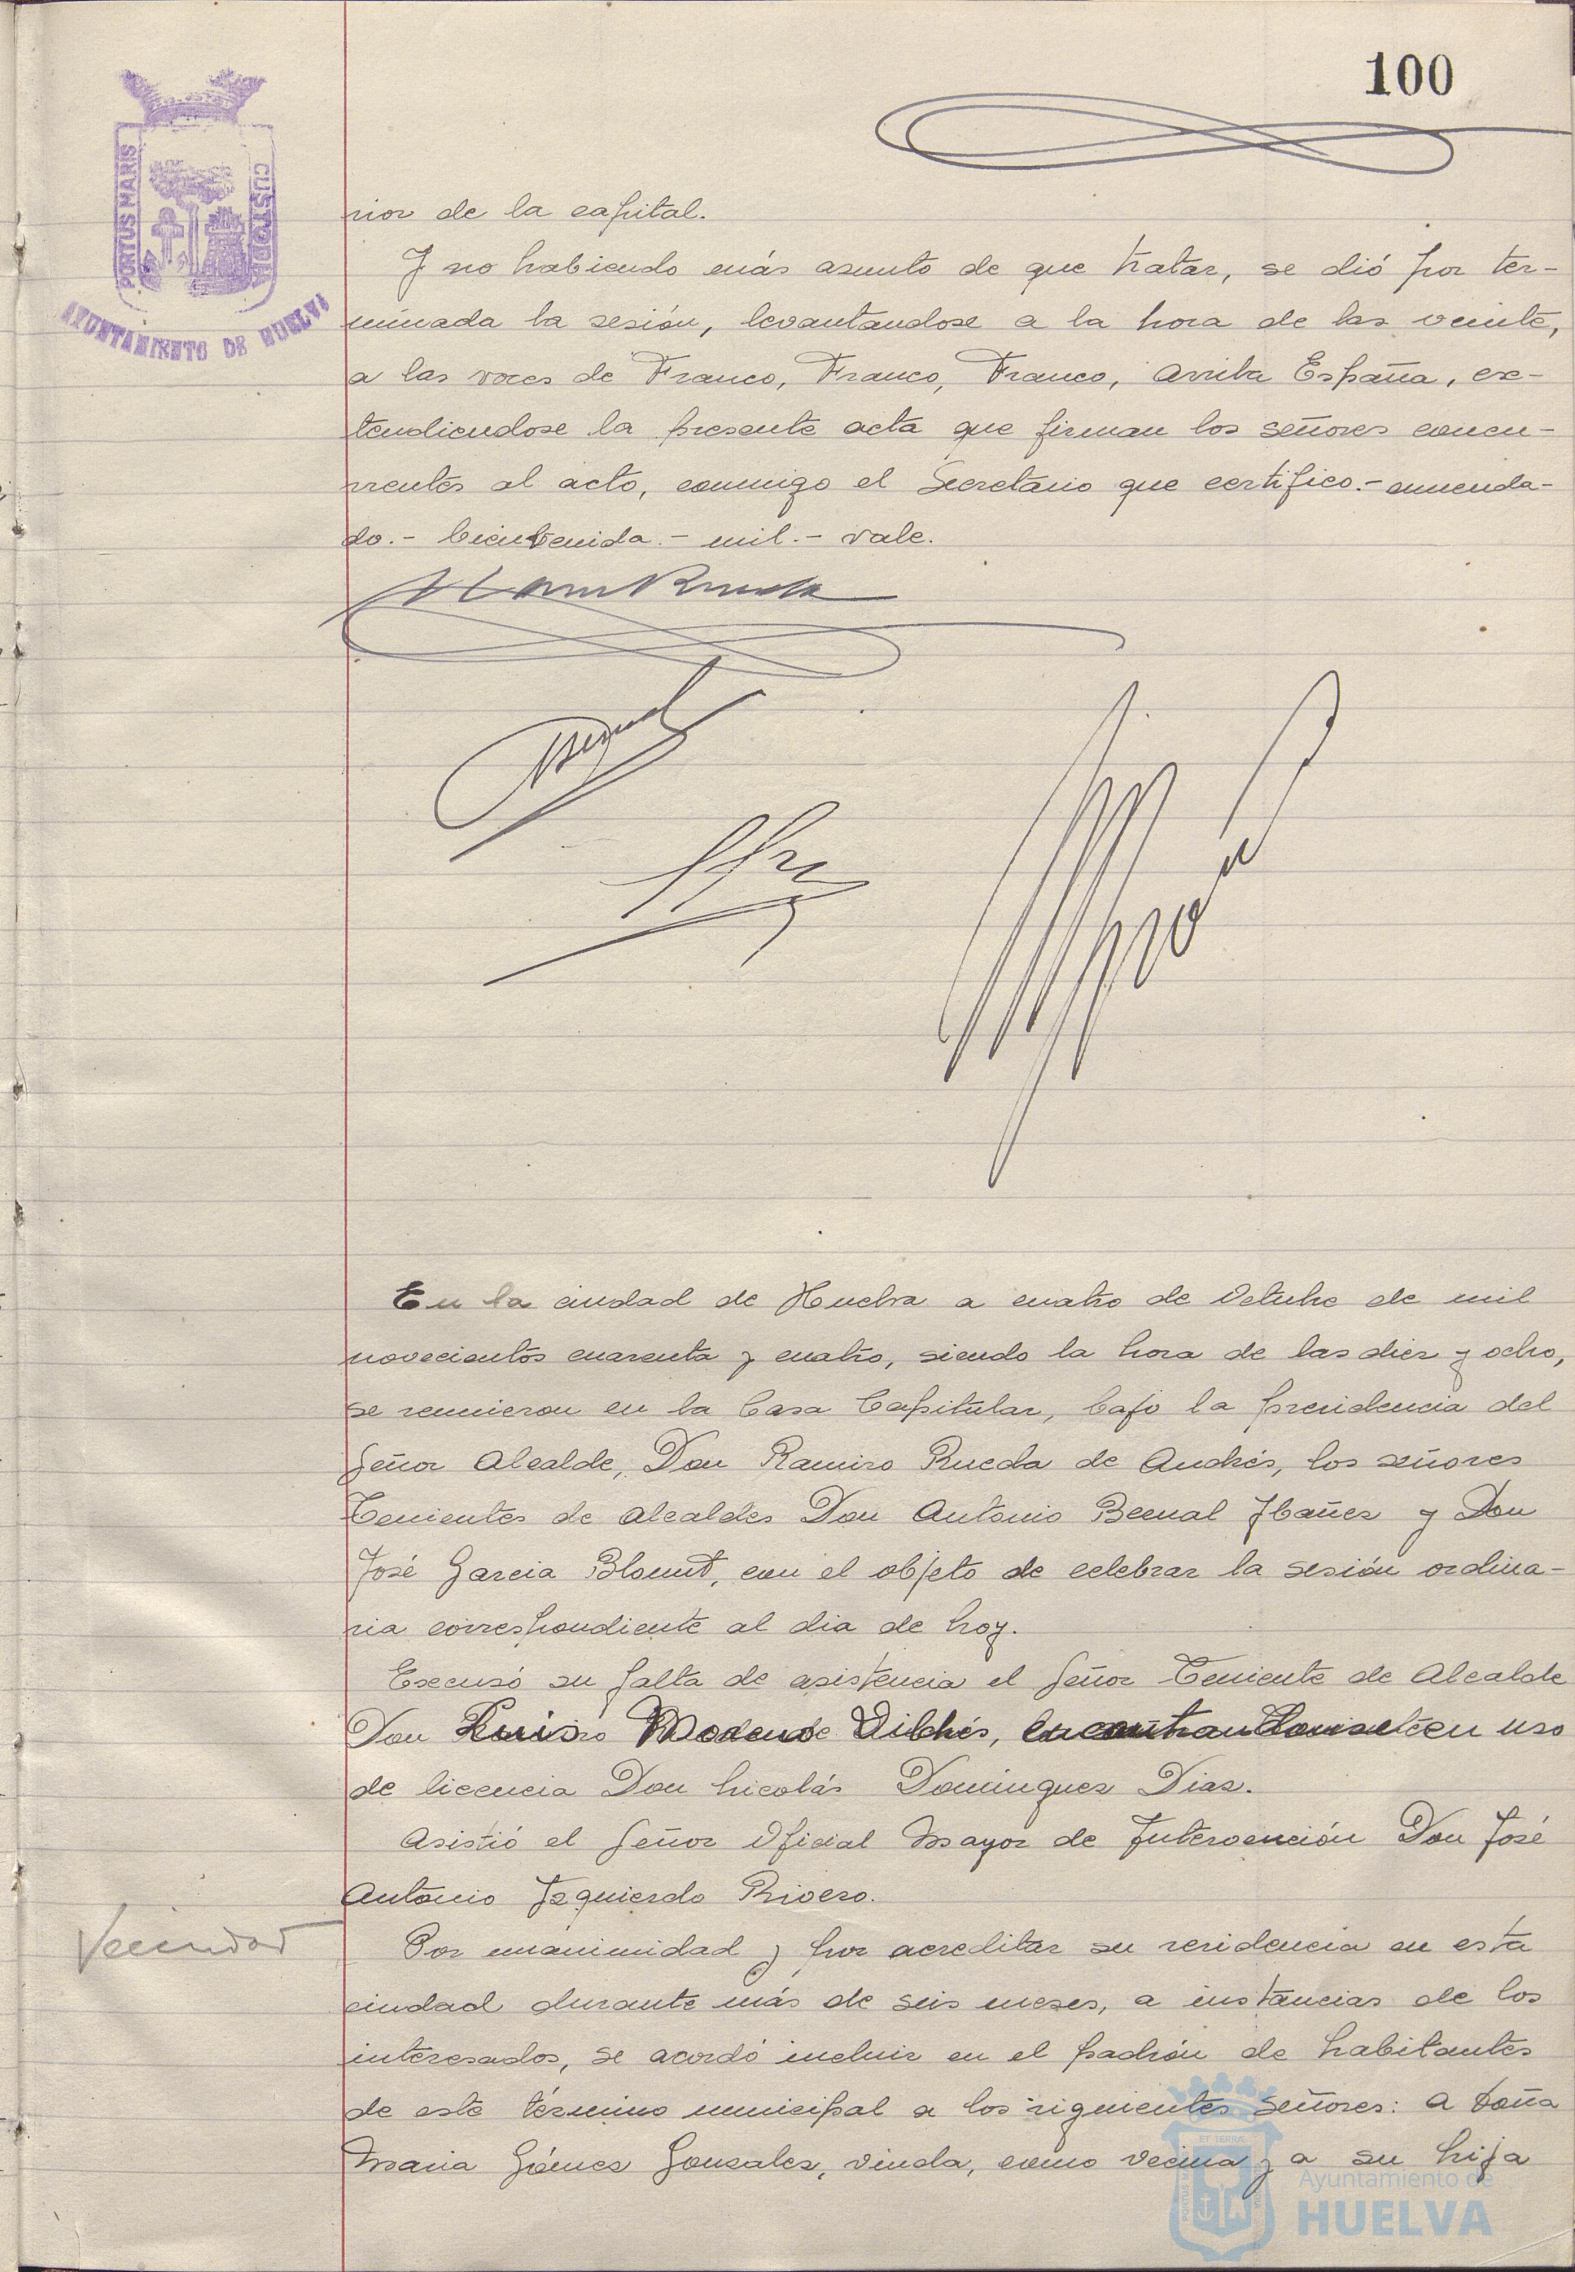 100
PORTUS MARIS
CUSTODIA
AYUNTAMIENTO DE HUELVA
rior de la capital.
Y no habiendo más asunto de que tratar, se dió por ter-
minada la sesión, levantandose a la hora de las veinte,
a las voces de Franco, Franco, Franco, Arriba España, ex-
tendiendose la presente acta que firman los señores concu-
rrentes al acto, conmigo el Secretario que certifico.- enmenda-
do.- bienvenida.- mil.- vale.
En la ciudad de Huelva a cuatro de Octubre de mil
novecientos cuarenta y cuatro, siendo la hora de las diez y ocho,
se reunieron en la Casa Capitular, bajo la presidencia del
Señor Alcalde, Don Ramiro Rueda de Andrés, los señores
Tenientes de Alcaldes Don Antonio Bernal Ibañez y Don
José Garcia Blount, con el objeto de celebrar la sesión ordina-
ria correspondiente al dia de hoy.
Excusó su falta de asistencia el Señor Teniente de Alcalde
Don Luis Vilches, en uso
de licencia Don Nicolás Dominguez Diaz.
Asistió el Señor Oficial Mayor de Intervención Don José
Antonio Izquierdo Rivero.
Vecindad
Por unanimidad y por acreditar su residencia en esta
ciudad durante más de seis meses, a instancias de los
interesados, se acordó incluir en el padrón de habitantes
de este término municipal a los siguientes Señores: a Doña
Maria Gómez Gonzalez, viuda, como vecina y a su hija
Ayuntamiento de
HUELVA